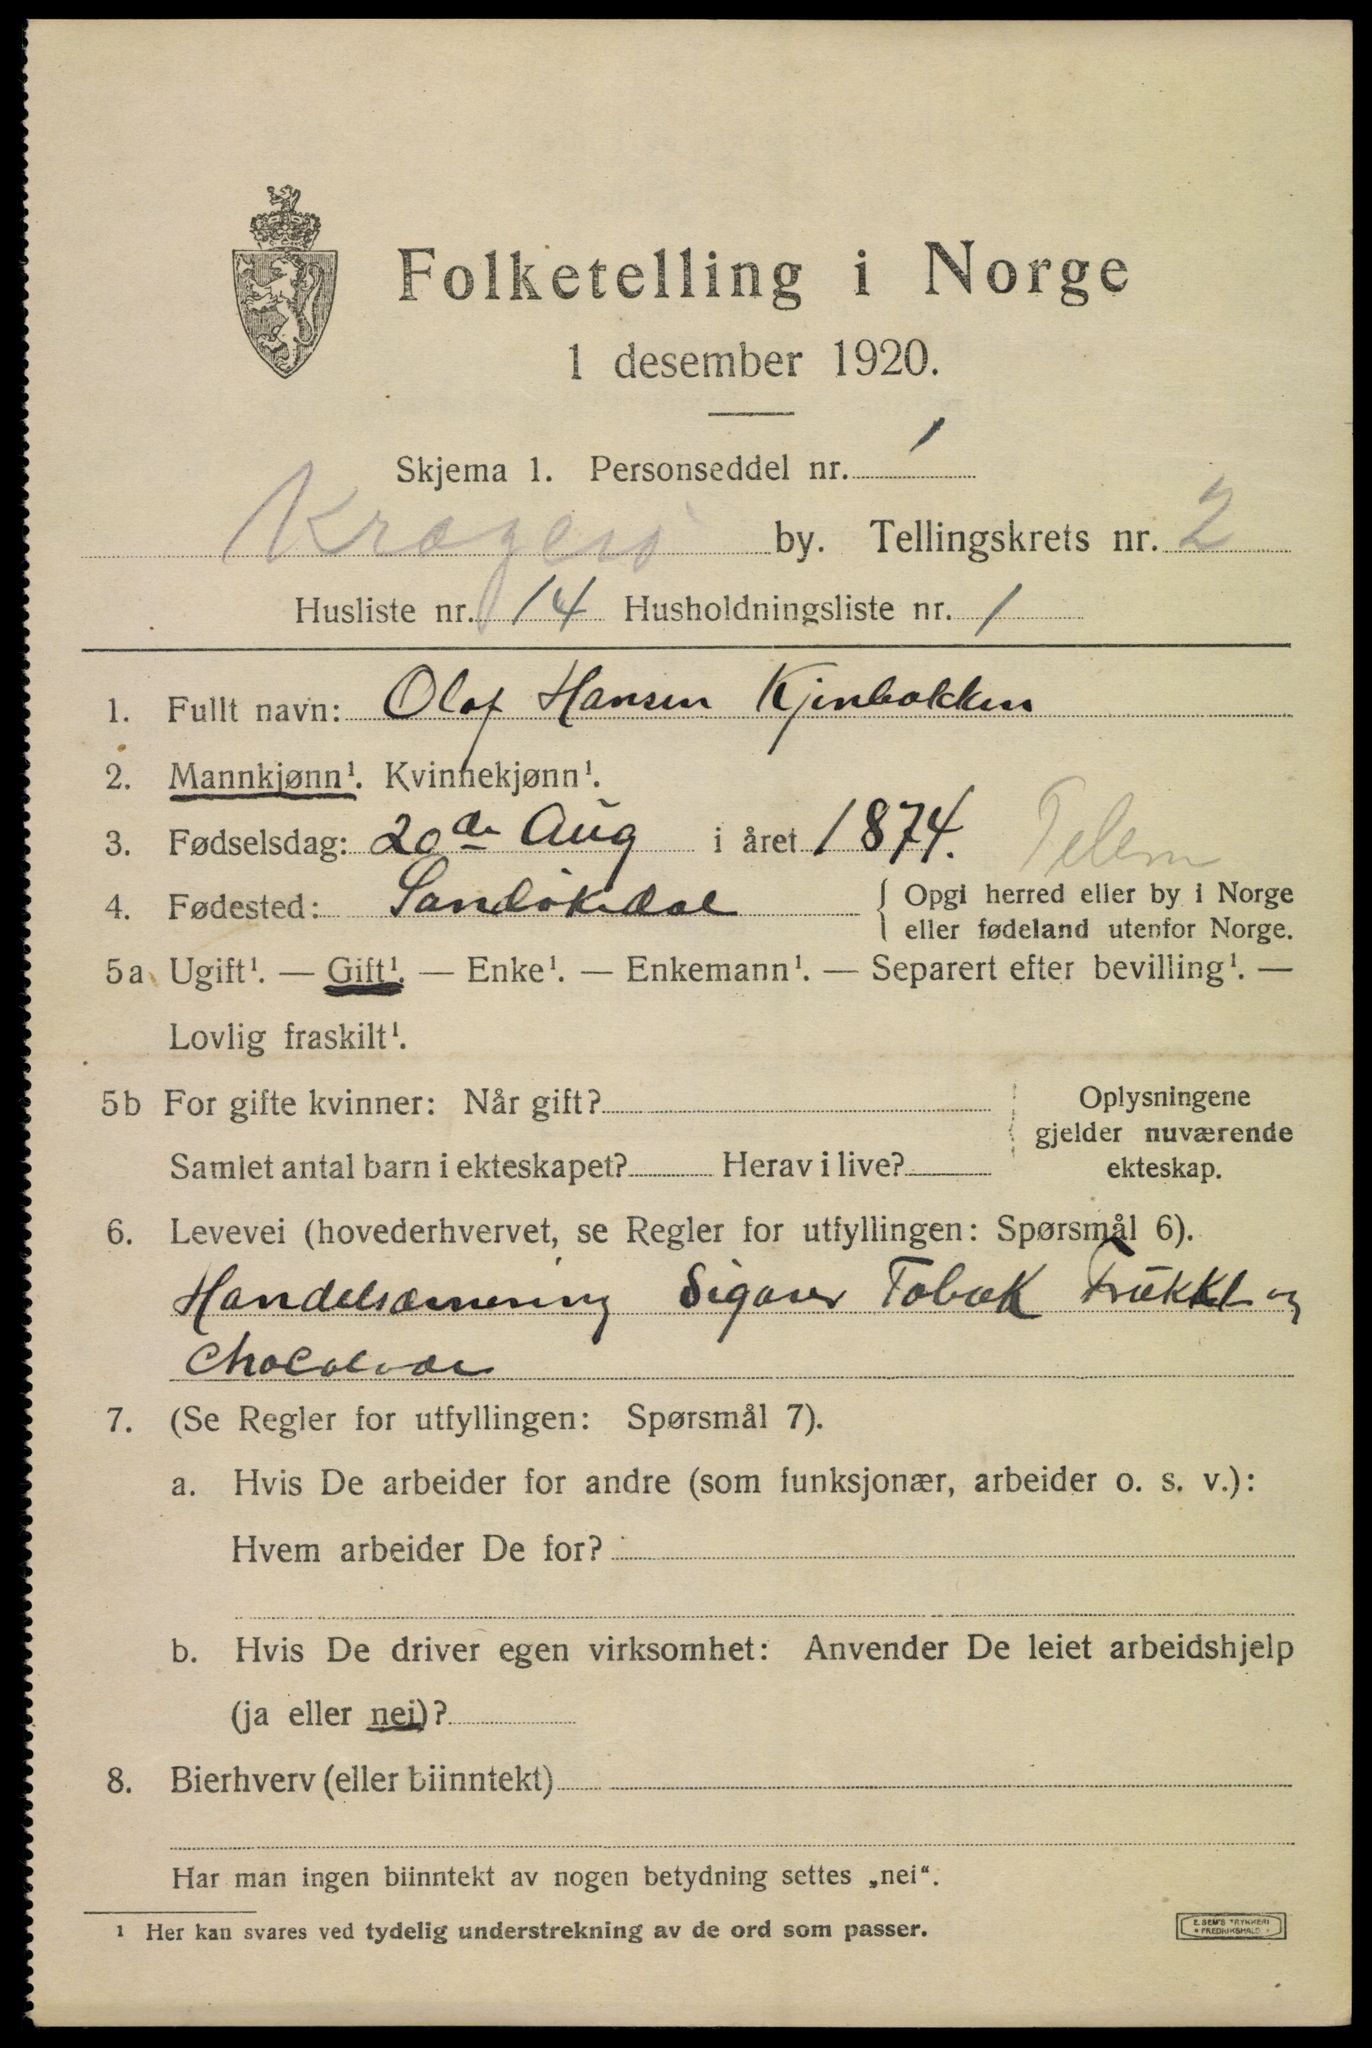 Folketelling i Norge
1 desember 1920.
Skjema 1. Personseddel nr. 1
Kragerø by. Tellingskrets nr. 2
Husliste nr. 14 Husholdningsliste nr. 1
1. Fullt navn: Olaf Hansen Kjenbakken
2. Mannkjønn¹. Kvinnekjønn¹.
3. Fødselsdag: 20de Aug i året 1874. Telem
4. Fødested: Sandøkedal { Opgi herred eller by i Norge
eller fødeland utenfor Norge.
5a Ugift¹. — Gift¹. — Enke¹. — Enkemann¹. — Separert efter bevilling¹. —
Lovlig fraskilt¹.
5b For gifte kvinner: Når gift?
Samlet antal barn i ekteskapet? Herav i live?
Oplysningene
gjelder nuværende
ekteskap.
6. Levevei (hovederhvervet, se Regler for utfyllingen: Spørsmål 6).
Handelsnæring Sigarer Tobak Frukkt og
Chocolade
7. (Se Regler for utfyllingen: Spørsmål 7).
a. Hvis De arbeider for andre (som funksjonær, arbeider o. s. v.):
Hvem arbeider De for?
b. Hvis De driver egen virksomhet: Anvender De leiet arbeidshjelp
(ja eller nei)?
8. Bierhverv (eller biinntekt)
Har man ingen biinntekt av nogen betydning settes „nei“.
¹ Her kan svares ved tydelig understrekning av de ord som passer.
E. SEM'S TRYKKERI
FREDRIKSHALD